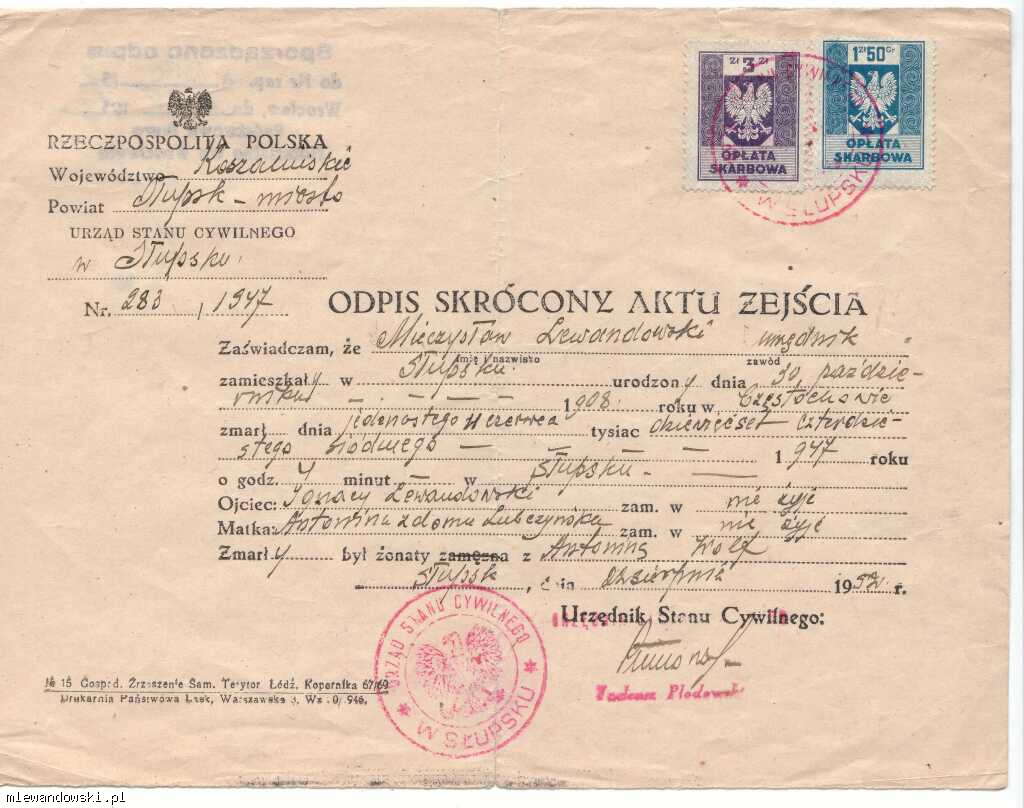 zł 3 zł
OPŁATA
SKARBOWA
1 zł 50 Gr
OPŁATA
SKARBOWA
W SŁUPSKU
RZECZPOSPOLITA POLSKA
Województwo Koszalińskie
Powiat Słupsk - miasto
URZĄD STANU CYWILNEGO
w Słupsku.
Nr. 283 / 1947
ODPIS SKRÓCONY AKTU ZEJŚCIA
Zaświadczam, że Mieczysław Lewandowski urzędnik
imię i nazwisko zawód
zamieszkały w Słupsku urodzony dnia 30 paździe-
rnika 1908 roku w Częstochowie
zmarł dnia jedenastego 11 czerwca tysiąc dziewięćset czterdzie-
stego siódmego 1947 roku
o godz. 4 minut — w Słupsku
Ojciec: Ignacy Lewandowski zam. w nie żyje
Matka: Antonina z domu Lubczyńska zam. w nie żyje
Zmarły był żonaty zamężna z Antoniną Wolf
Słupsk, dnia sierpnia 1952 r.
Urzędnik Stanu Cywilnego:
URZĄD STANU CYWILNEGO
W SŁUPSKU
Tadeusz Plodowski
№ 15 Gospod. Zrzeszenie Sam. Terytor Łódź, Kopernika 67/69
Drukarnia Państwowa Łask, Warszawska
mlewandowski.pl